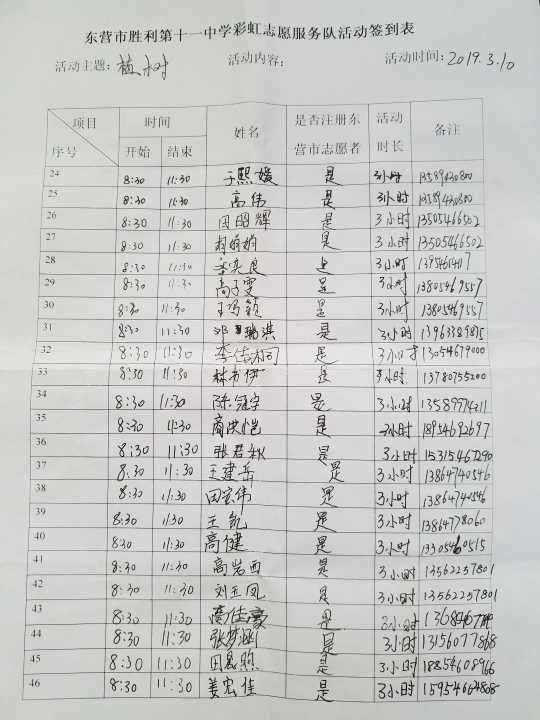 东营市胜利第十一中学彩虹志愿服务队活动签到表
活动主题：植树 活动内容： 活动时间：2019.3.10
项目 序号 时间 开始 结束 姓名 是否注册东营市志愿者 活动时长 备注
24 8:30 11:30 于熙媛 是 3小时 13589430800
25 8:30 11:30 高伟 是 3小时 13589430800
26 8:30 11:30 田昭辉 是 3小时 13505466502
27 8:30 11:30 是 3小时 13505466502
28 8:30 11:30 是 3小时
29 8:30 11:30 高子雯 是 3小时 13805469557
30 8:30 11:30 王玛颖 是 3小时 13805469557
31 8:30 11:30 邓瑞淇 是 3小时 13963389875
32 8:30 11:30 李佳桐 是 3小时 13054679000
33 8:30 11:30 林书伊 是 3小时 13780755200
34 8:30 11:30 陈冠宇 是 3小时 13589974211
35 8:30 11:30 商洪恺 是 3小时 18954692697
36 8:30 11:30 张君秋 是 3小时 15315467290
37 8:30 11:30 王建岳 是 3小时 13864740546
38 8:30 11:30 田宏伟 是 3小时 13864740546
39 8:30 11:30 王凯 是 3小时 13864778060
40 8:30 11:30 高健 是 3小时 13305460515
41 8:30 11:30 高岩西 是 3小时 13562257801
42 8:30 11:30 刘玉凤 是 3小时 13562257801
43 8:30 11:30 是 3小时
44 8:30 11:30 张梦涵 是 3小时 13156077868
45 8:30 11:30 田晨煦 是 3小时 18854608966
46 8:30 11:30 姜宏佳 是 3小时 15954664808